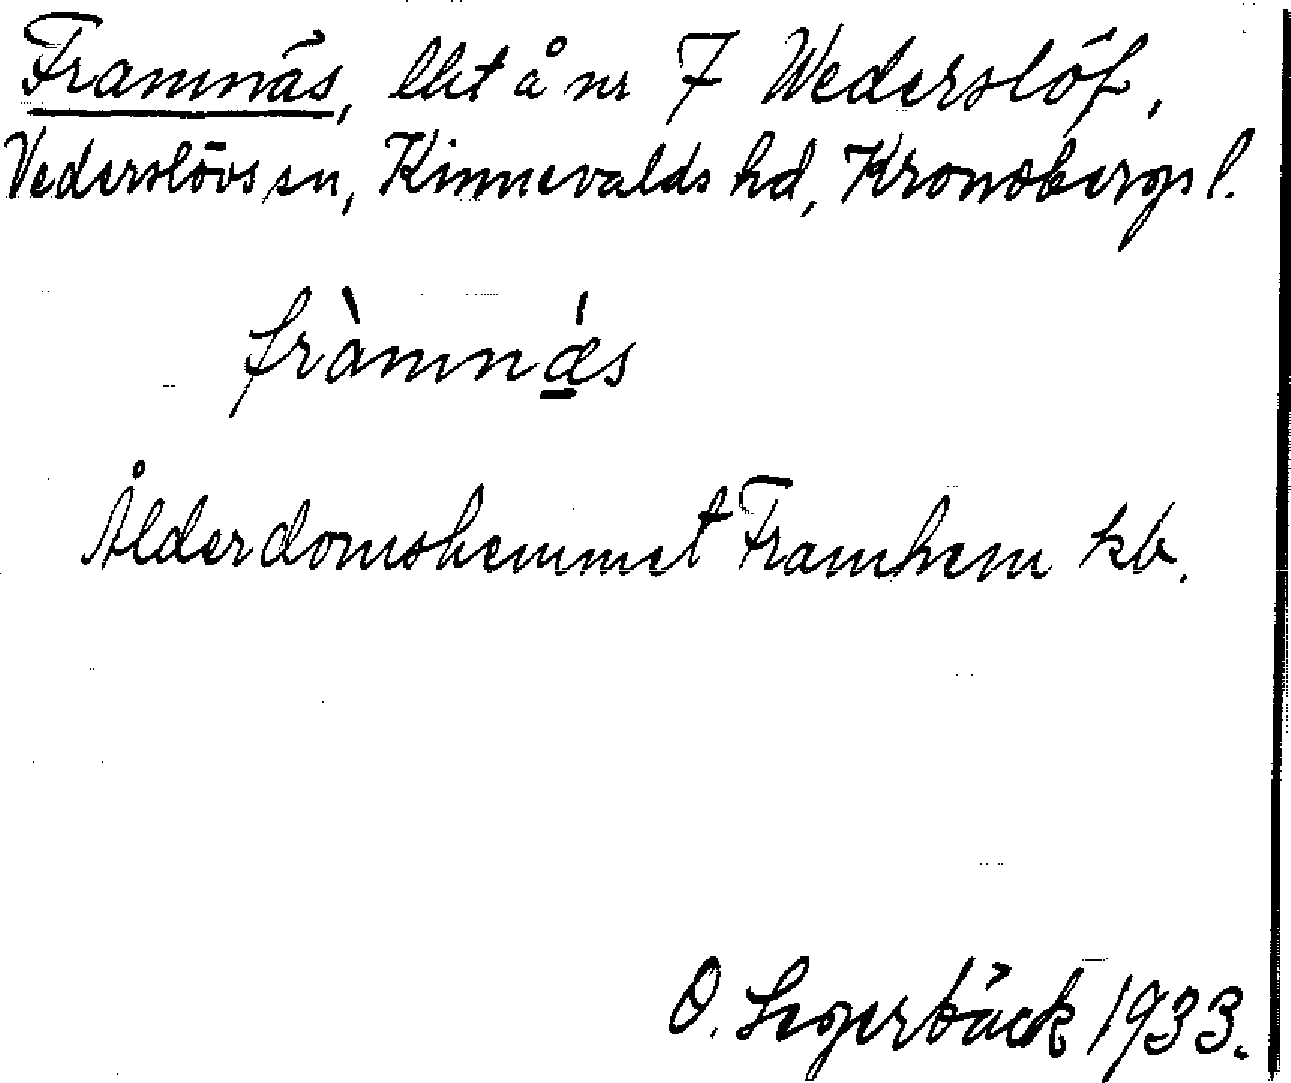 Framnäs, lht å nr 7 Wederslöf,
Vederslövs sn, Kinnevalds hd, Kronobergs l.
fràmnǽs
Ålderdomshemmet Framhem kb.
O. Segerbäck 1933.